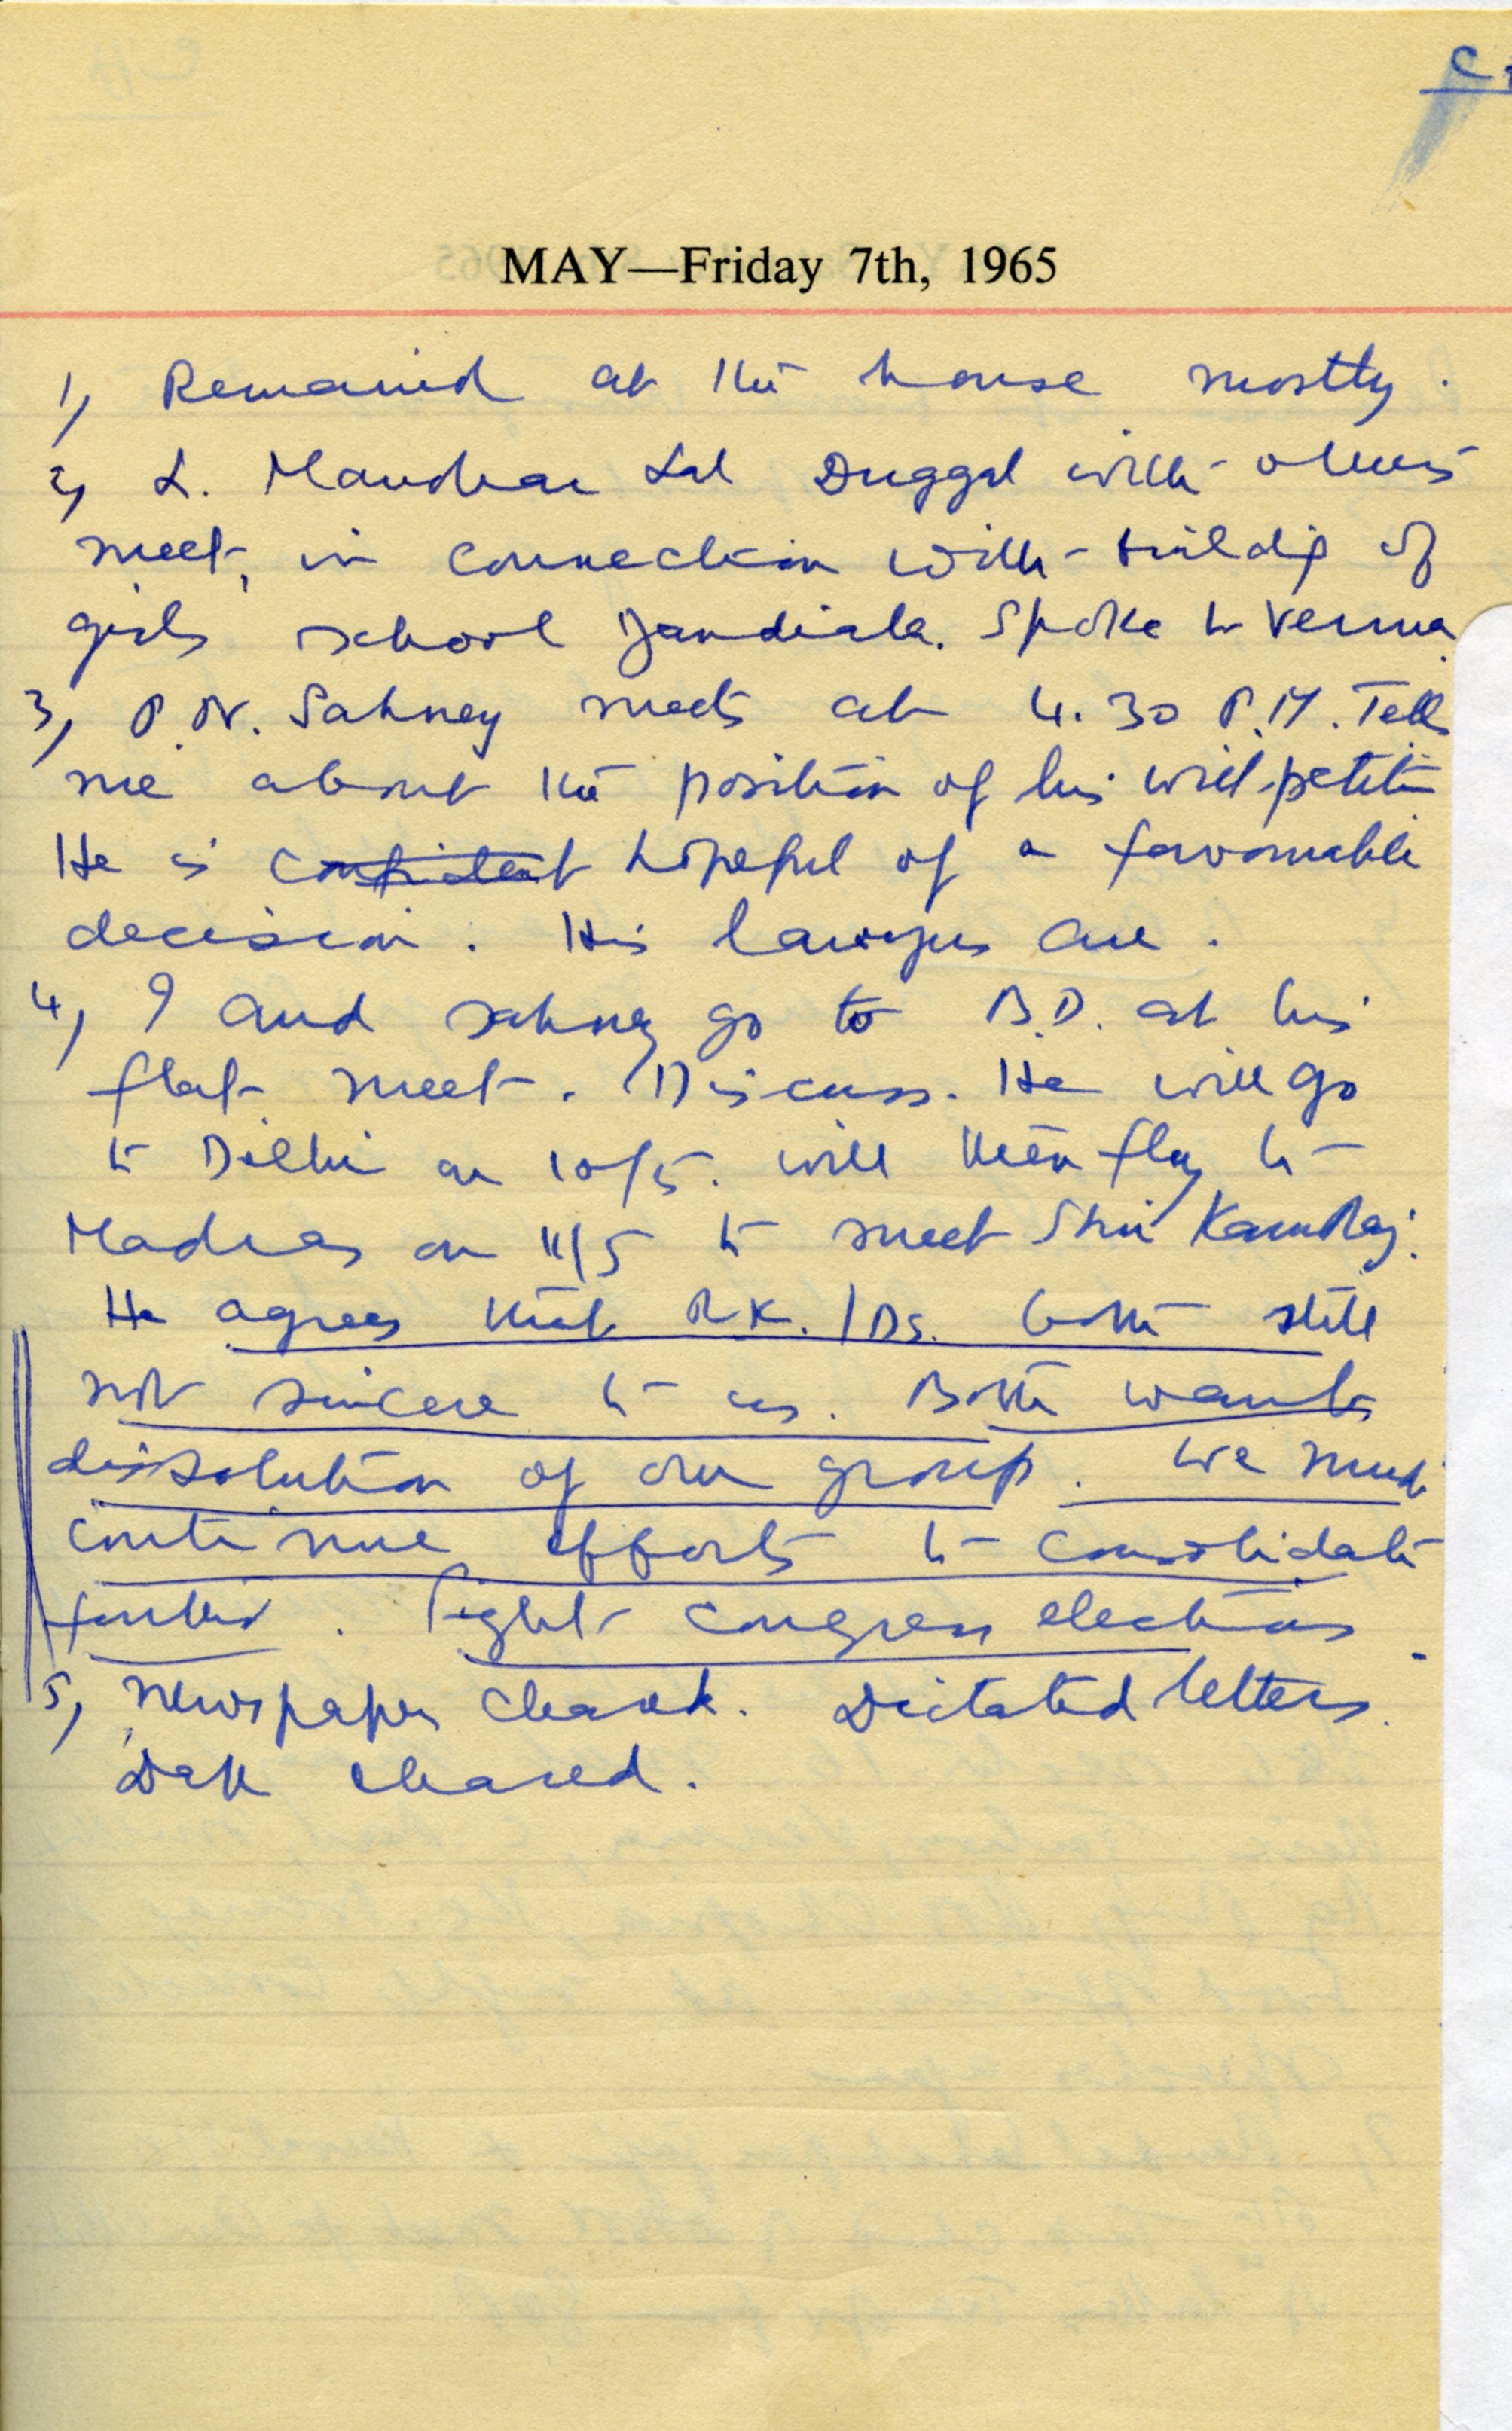 MAY—Friday 7th, 1965
1, Remained at the house mostly.
2, L. Lal Duggal with others
meet, in connection with building of
girls school Jandiala. Spoke to Verma.
3, P.N. Sahney meets at 4.30 P.M. Tells
me about the position of his writ petition
He is confident hopeful of a favourable
decision. His lawyers are.
4, I and Sahney go to B.D. at his
flat meet. Discuss. He will go
to Delhi on 10/5. will then fly to
Madras on 11/5 to meet Shri KamRaj.
He agrees that R.K. / DS. both still
not sincere to us. Both wants
dissolution of our group. We must
continue efforts to consolidate
further. Fight Congress elections.
5, Newspaper cleared. Dictated letters.
Dak cleared.